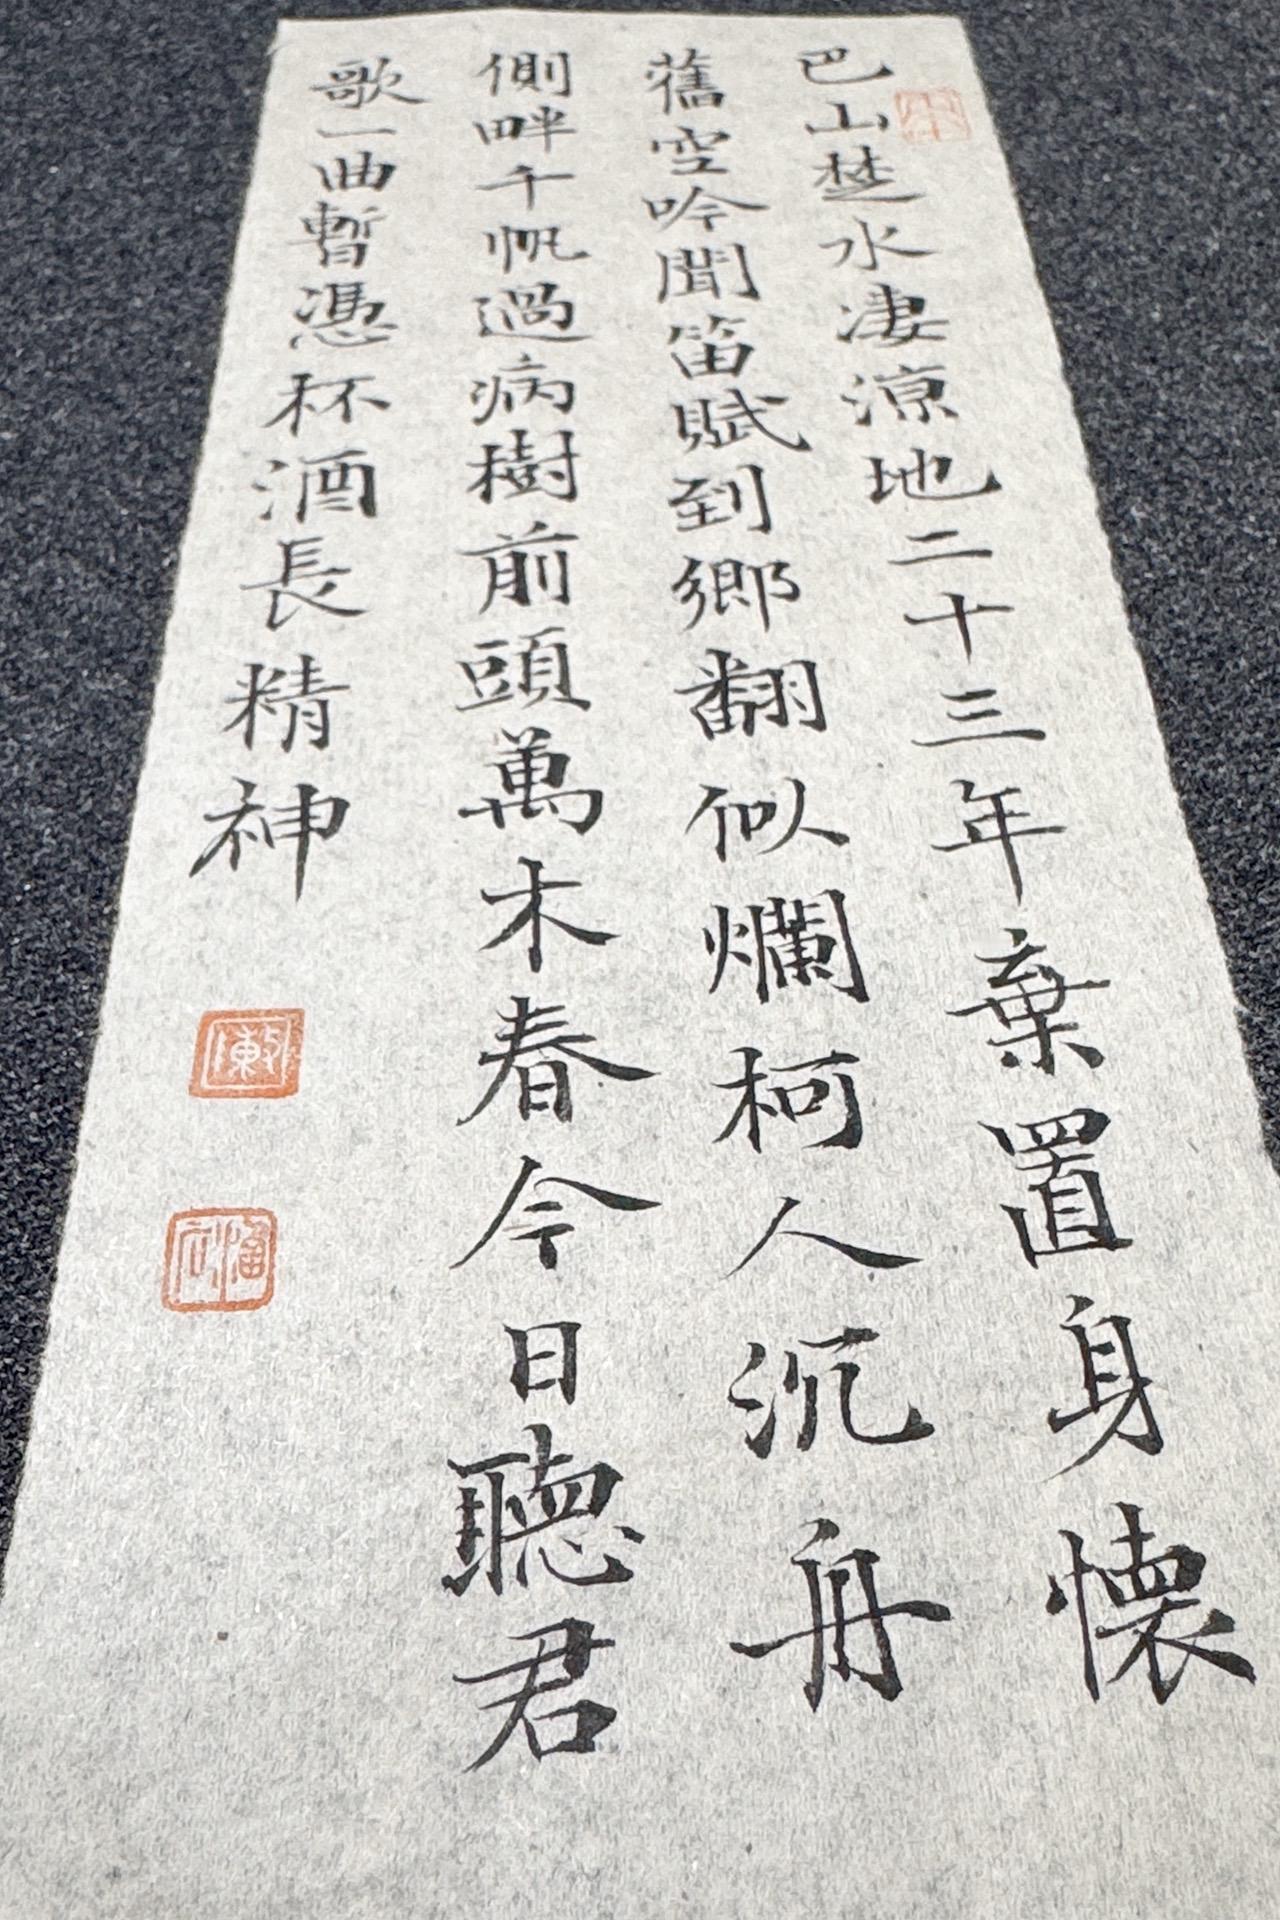 巴山楚水淒涼地二十三年棄置身懷
舊空吟聞笛賦到鄉翻似爛柯人沉舟
側畔千帆過病樹前頭萬木春今日聽君
歌一曲暫憑杯酒長精神